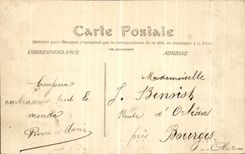 Carte Postale
CORRESPONDANCE
ADRESSE
Bonjour
embrassons tout le
monde
Pierre et Marie
Mademoiselle
J. Benoist
Route d'Orléans
près
Bourges
Cher